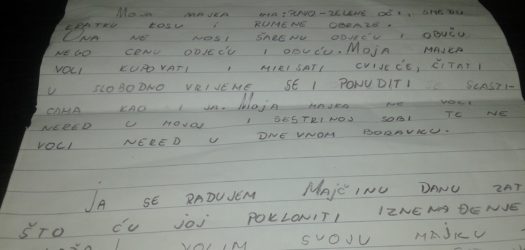 MOJA MAJKA IMA: PLAVO-ZELENE OČI, SMEĐU
KRATKU KOSU I RUMENE OBRAZE.
ONA NE NOSI ŠARENU ODJEĆU I OBUĆU
NEGO CRNU ODJEĆU I OBUĆU. MOJA MAJKA
VOLI KUPOVATI I MIRISATI CVIJEĆE, ČITATI
U SLOBODNO VRIJEME I PONUDITI SE SLASTI-
CAMA KAO I JA. MOJA MAJKA NE VOLI
NERED U MOJOJ I SESTRINOJ SOBI TE NE
VOLI NERED U DNEVNOM BORAVKU.
JA SE RADUJEM MAJČINU DANU ZAT
ŠTO ĆU JOJ POKLONITI IZNENAĐENJE
VOLIM SVOJU MAJKU